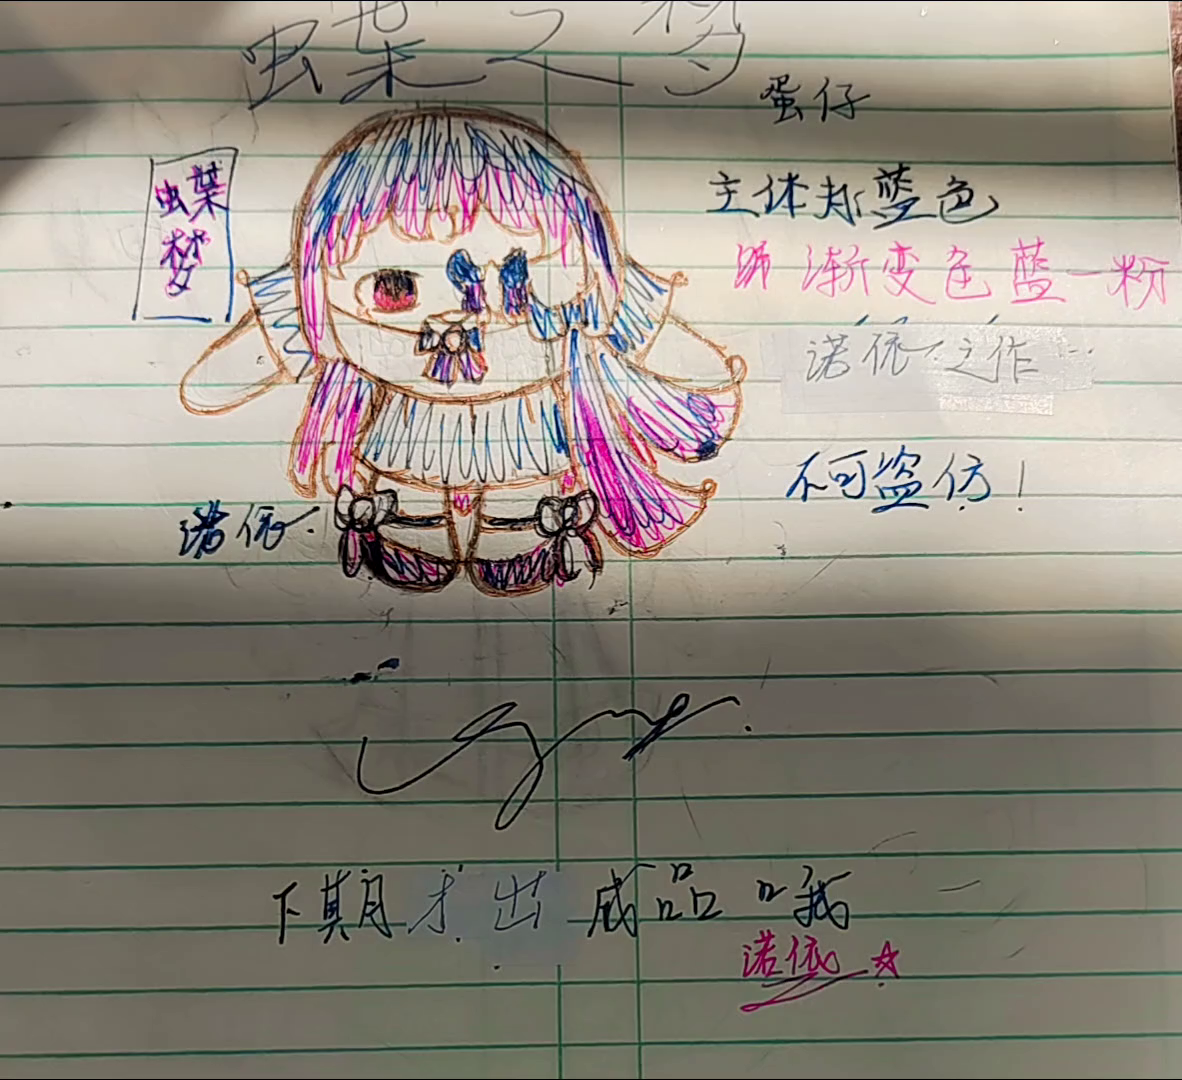 蝶之梦
蛋仔
蝶
梦
主体为蓝色
渐变色蓝一粉
诺依之作
不可盗仿!
诺依.
下期才出成品哦
诺依☆